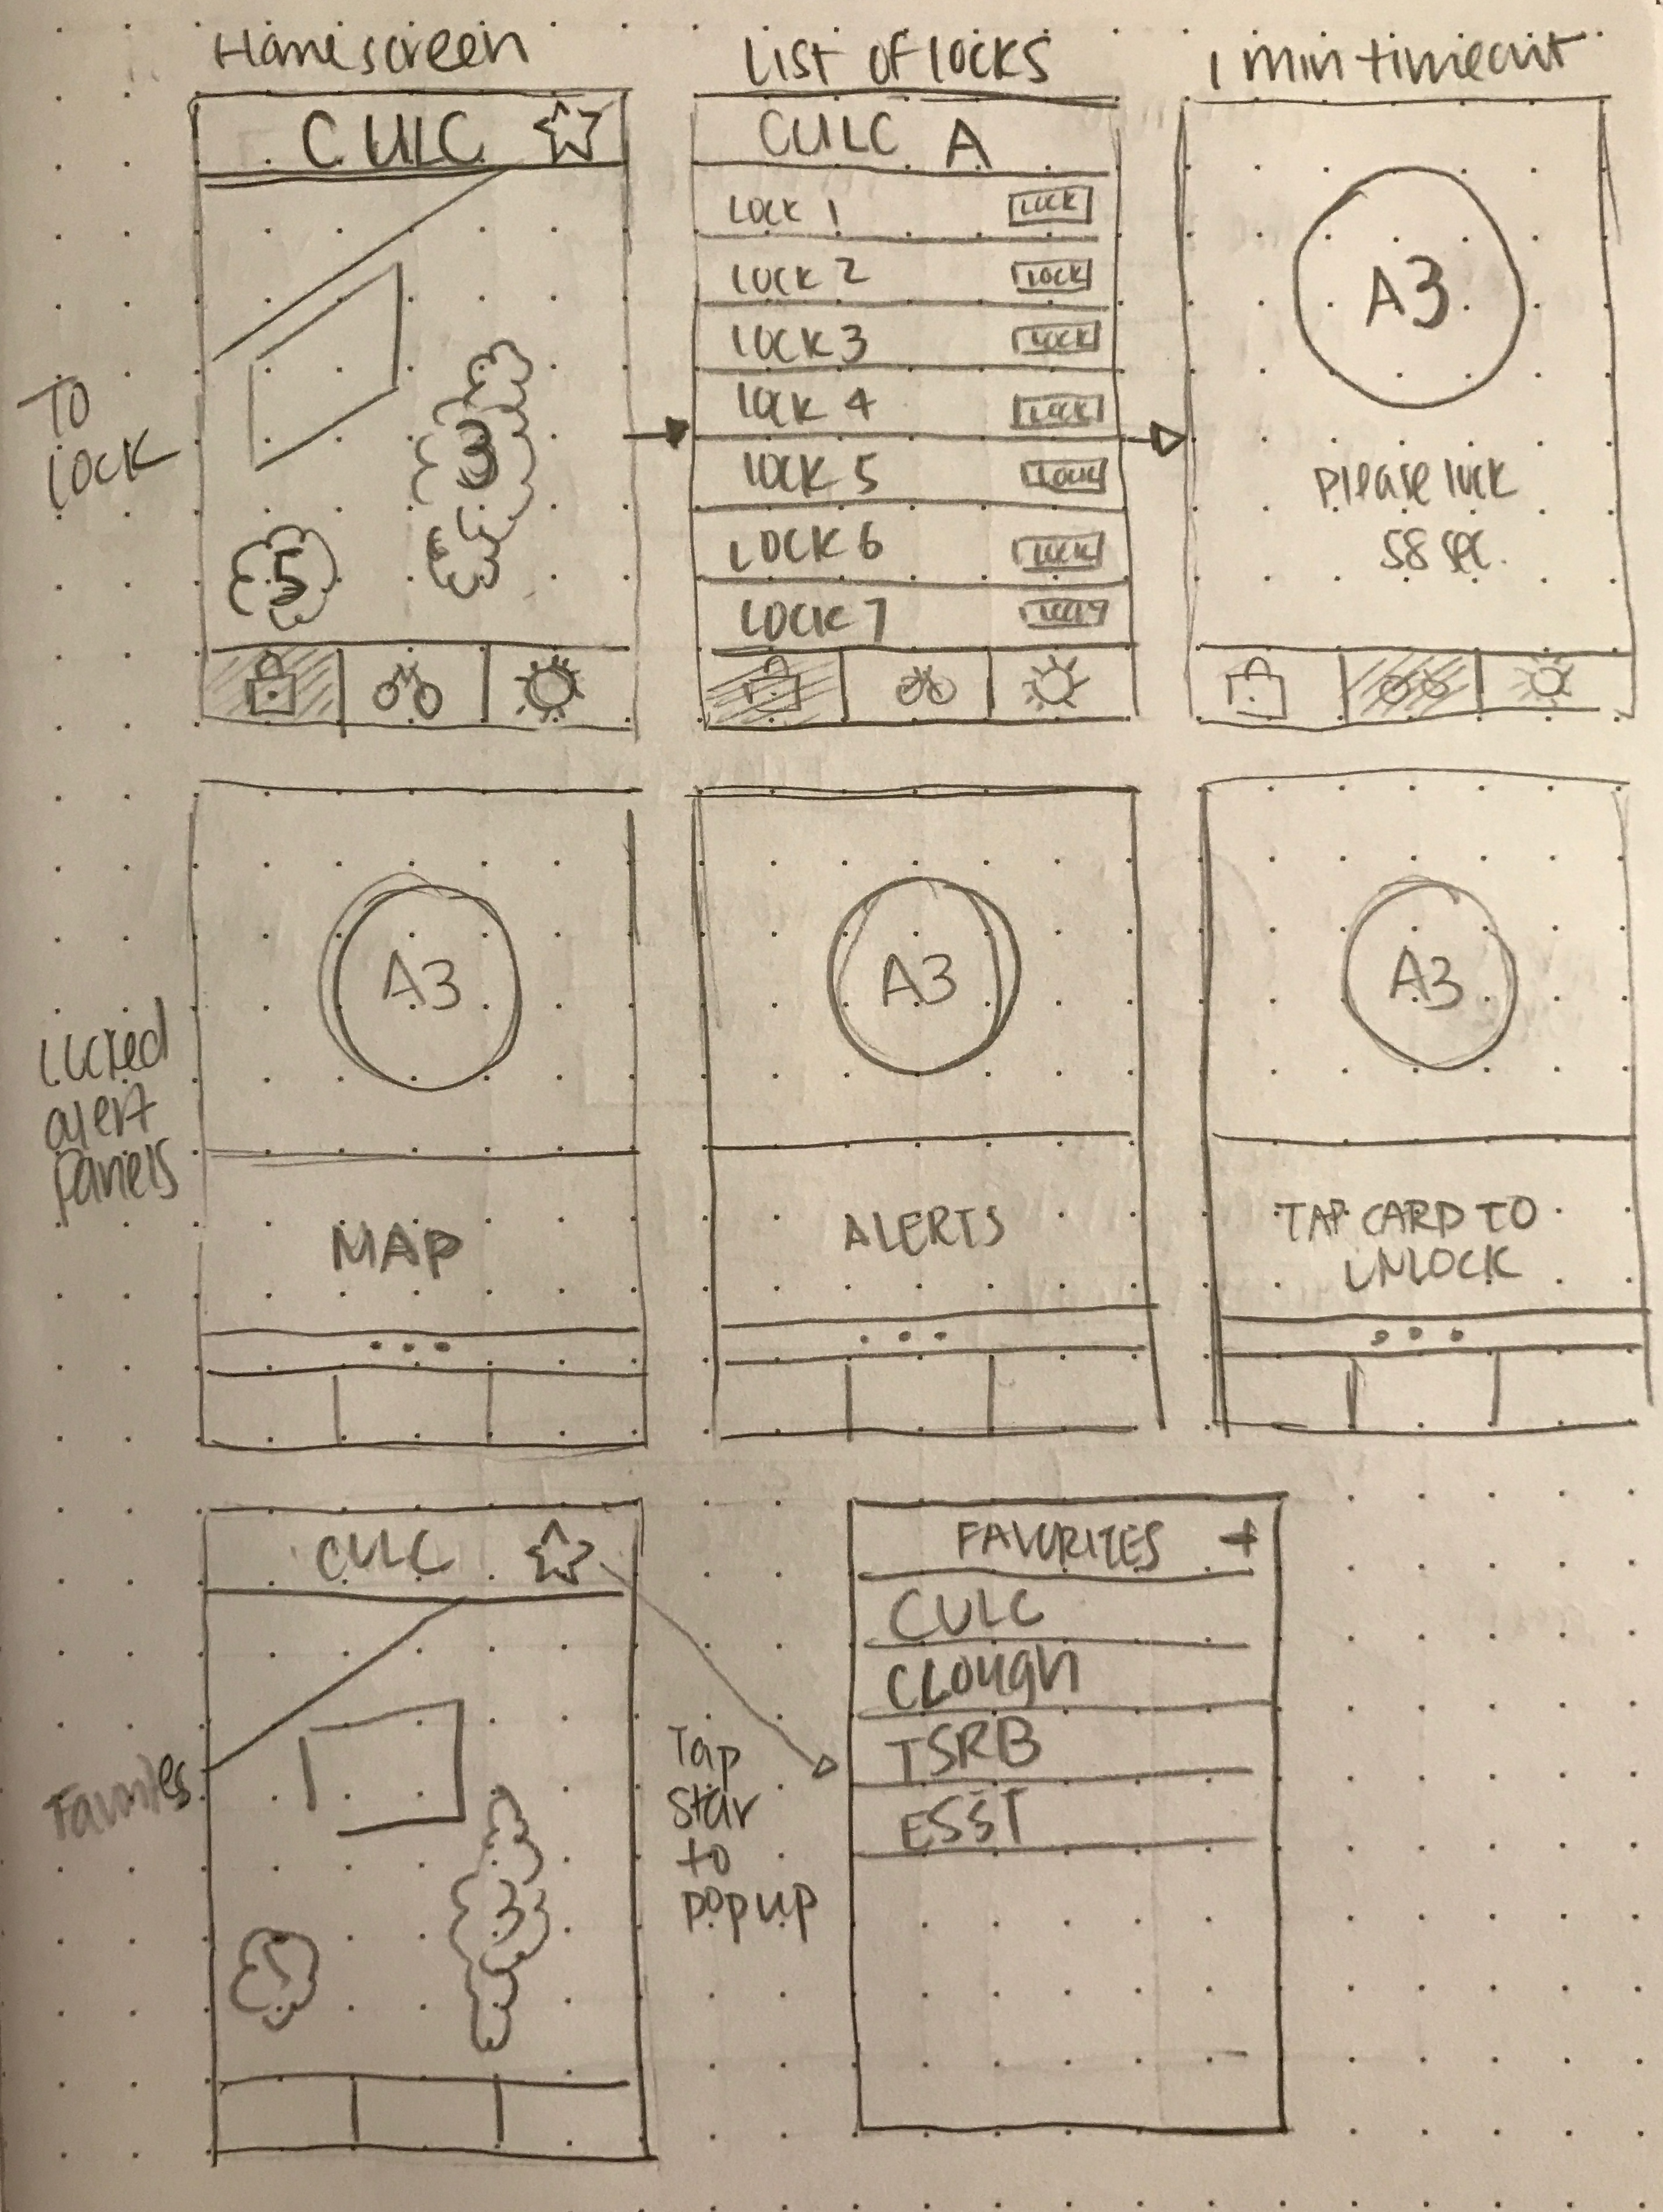 Homescreen
List of locks
1 min timeout
TO
LOCK
CULC
3
5
CULC A
LOCK 1 LOCK
LOCK 2 LOCK
LOCK 3 LOCK
LOCK 4 LOCK
LOCK 5 LOCK
LOCK 6 LOCK
LOCK 7 LOCK
A3
please lock
58 sec.
Locked
alert
panels
A3
MAP
A3
ALERTS
A3
TAP CARD TO
UNLOCK
Favorites
CULC
3
5
Tap
star
to
popup
FAVORITES +
CULC
CLOUGH
TSRB
ES&T